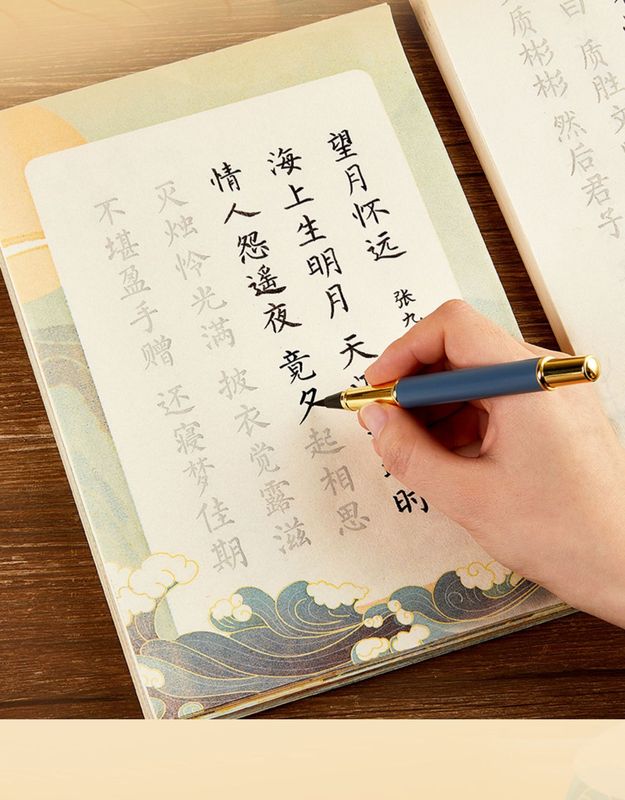 望月怀远 张九
海上生明月 天 时
情人怨遥夜 竟夕起相思
灭烛怜光满 披衣觉露滋
不堪盈手赠 还寝梦佳期
曰 质胜文
质彬彬 然后君子